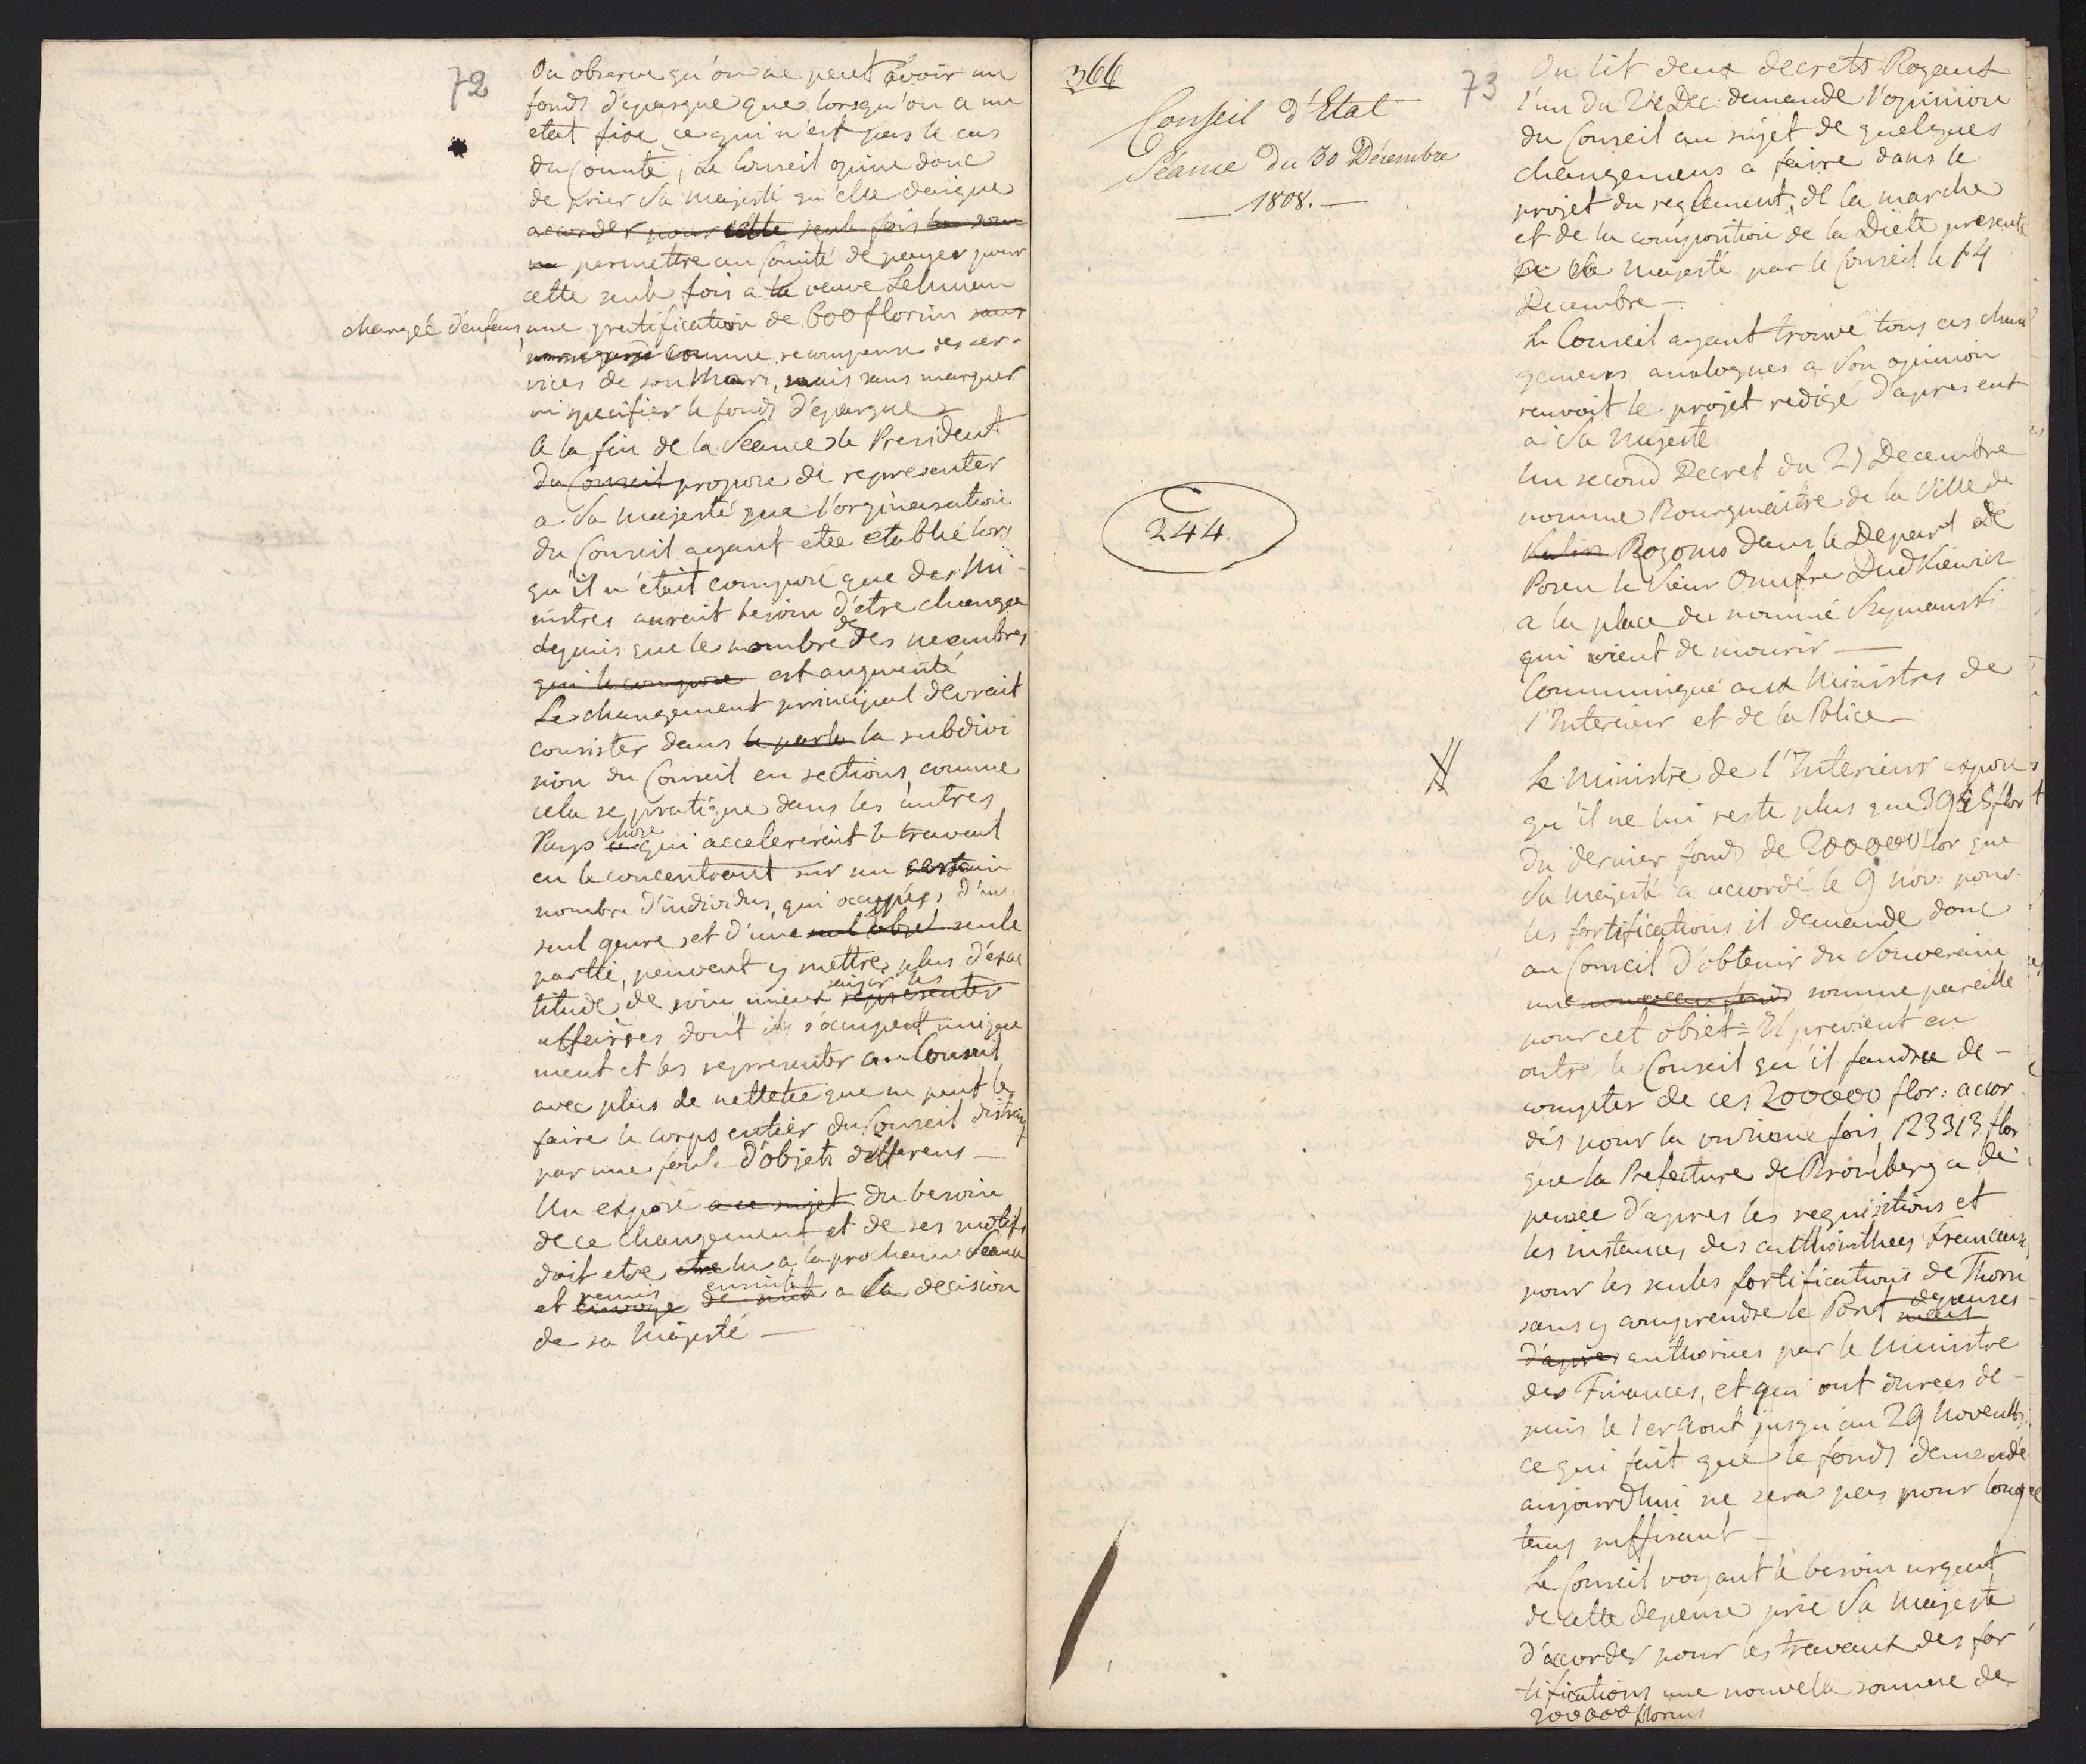 72
On observe qu'on ne peut avoir un
fonds d'epargne que lorsqu'on a un
etat fixe, ce qui n'est pas le cas
du Comité, Le Conseil opine donc
de prier Sa Majesté qu'elle daigne
accorder pour cette seule fois
permettre au Comité de payer pour
cette seule fois a la veuve Lehmann
chargée d'enfans, une gratification de 600 florins sans
comme recompense des ser-
vices de son Mari, mais sans marquer
ni specifier le fonds d'épargne
A la fin de la Séance le President
du Conseil propose de representer
a Sa Majesté que l'orginisation
du Conseil ayant etée etablie lors
qu'il n'était composé que des Mi-
nistres aurait besoin d'être changée
depuis que le nombre de des membres
qui le compose est augmenté
Le changement principal devrait
consister dans la subdivi
sion du Conseil en sections, comme
cela se pratique dans les autres
Pays ce chose qui accelererait le travail
en le concentrant sur un certain
nombre d'individus, qui occuppés d'un
seul genre, et d'une seul objet seule
partie, peuvent y mettre plus d'exac
titude, de soin, mieux representer les
affaires dont ils s'occupent unique
ment et les representer au Conseil
avec plus de netteté que ne peut le
faire le corps entier du Conseil distrait
par une foule d'objets differens —
Un exposé a ce sujet du besoin
de ce changement et de ses motifs
doit etre etre lu a la prochaine Séance
et envoyé remis de suite ensuite a la decision
de sa Majesté —
366
Conseil d'Etat
Séance du 30 Décembre
— 1808. —
244
73
On lit deux decrets Royaux
l'un du Dec: demande l'opinion
du Conseil au sujet de quelques
changemens a faire dans le
projet du reglement, de la marche
et de la composition de la Diete presenté
a Sa Majesté par le Conseil le 14
Decembre —
Le Conseil ayant trouvé tous ces chan
gemens analogues a son opinion
renvoit le projet redigé d'apres eux
a Sa Majesté
Un second Decret du 21 Decembre
nomme Bourgmaitre de la Ville de
Rogono dans le Depart de
Posen le Sieur Onufre Dudkiewicz
a la place du nommé Szymanski
qui vient de mourir —
Communiqué aux Ministres de
l'Interieur et de la Police —
Le Ministre de l'Interieur expose
qu'il ne lui reste plus que flor
du dernier fonds de 200000 flor que
Sa Majesté a accordé le 9 Nov: pour
les fortifications il demande donc
au Conseil d'obtenir du Souverain
une nouveau fond somme pareille
pour cet objet = Il previent en
outre le Conseil qu'il faudra de-
compter de ces 200000 flor: accor
dés pour la onzieme fois 123313 flor
que la Prefecture de Bromberg a de
pensée d'apres les requisitions et
les instances des authorithees Francaises
pour les seules fortifications de Thorn
sans y comprendre le Pont mais depenses
d'apres authorisées par le Ministre
des Finances, et qui ont durees de-
puis le 1er Aout jusqu'au 29 Novemb:
ce qui fait que le fonds demandé
aujourdhui ne sera pas pour long
tems suffisant —
Le Conseil voyant le besoin urgent
de cette depense prie Sa Majesté
d'accorder pour les travaux des for
tifications une nouvelle somme de
200000 florins